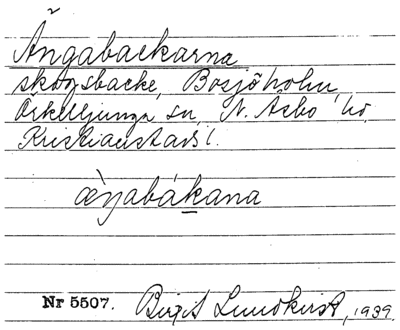 Ängabackarna
skogsbacke, Bosjöholm,
Örkelljunga sn, N. Åsbo hd.
Kristianstads l.
œ̀ŋabákana
Nr 5507.
Birgit Lundkvist, 1939.